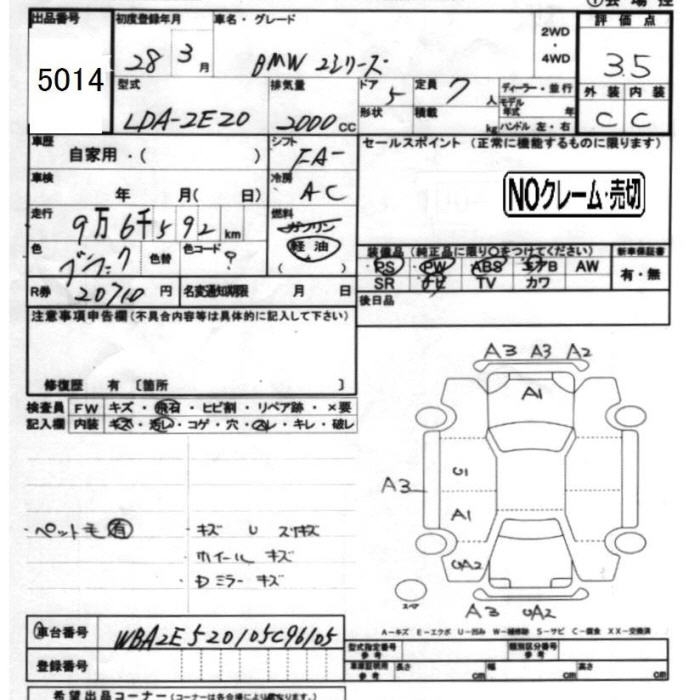 ①会場控
出品番号 初度登録年月 車名・グレード 評価点
5014 28 3月 BMW 2シリーズ 2WD・4WD 3.5
型式 排気量 ドア 定員 ディーラー・並行 外装 内装
LDA-2E20 2000CC 5 7人 モデル年式 年 C C
形状 積載 kg ハンドル 左・右
車歴 シフト セールスポイント (正常に機能するものに限ります)
自家用・( ) FA-
車検 冷房
年 月( 日) AC NOクレーム・売切
走行 燃料
9万6千592km ガソリン
色 色替 色コード 軽油
? ( ) 装備品(純正品に限り○をつけてください) 新車保証書
PS PW ABS エアB AW 有・無
R券 20710円 名変通知期限 月 日 SR ナビ TV カワ
後日品
注意事項申告欄(不具合内容等は具体的に記入して下さい)
修復歴 有〔箇所 〕
検査員 FW キズ・飛石・ヒビ割・リペア跡・×要
記入欄 内装 キズ・汚レ・コゲ・穴・スレ・キレ・破レ
A3 A3 A2
A1
U1
A3
A1
UA2
・ペット毛有 ・キズ U スリキズ
・ホイール キズ
・Dミラー キズ
スペア
A3 UA2
A-キズ E-エクボ U-凹み W-補修跡 S-サビ C-腐食 XX-交換済
車台番号 WBA2E520105C96105
型式指定番号 参考 類別区分番号 参考
登録番号 車庫証明用 参考 長さ cm 幅 cm 高さ cm
希望出品コーナー(コーナーは各会場により異なります。)